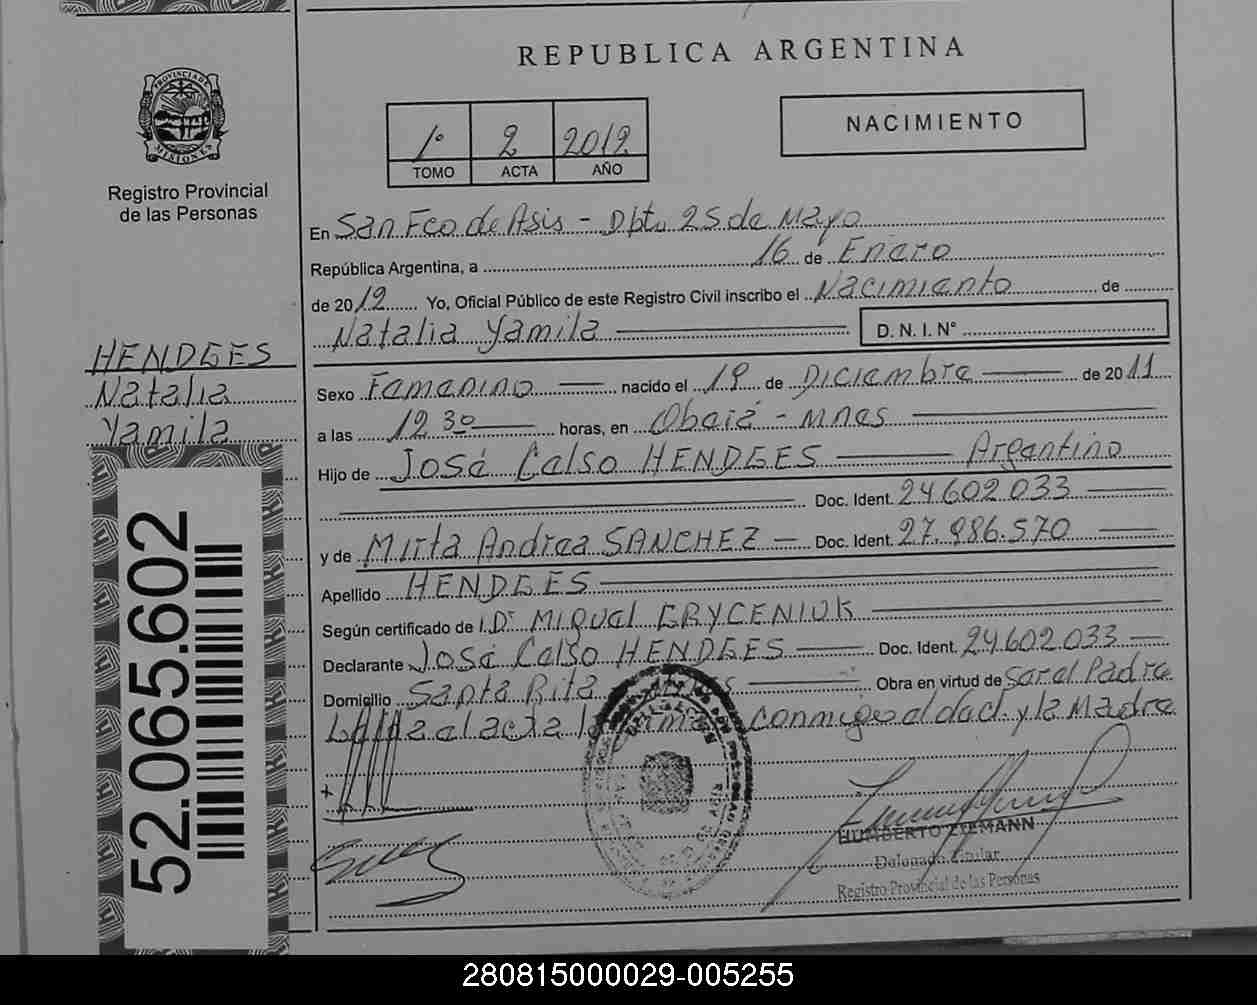 REPUBLICA ARGENTINA
PROVINCIA DE
MISIONES
Registro Provincial
de las Personas
1° 2 2012
TOMO ACTA AÑO
NACIMIENTO
En San Fco de Asis - Dpto 25 de Mayo
República Argentina, a 16 de Enero
de 2012 Yo, Oficial Público de este Registro Civil inscribo el Nacimiento de
Natalia Yamila D. N. I. N°
HENDGES
Natalia
Yamila
Sexo Femenino nacido el 19 de Diciembre de 2011
a las 12 30 horas, en Oberá - Mnes
Hijo de José Celso HENDGES Argentino
Doc. Ident. 24.602.033
y de Mirta Andrea SANCHEZ Doc. Ident. 27.986.570
Apellido HENDGES
Según certificado de I.Dr MIguel GRYCENIUK
Declarante José Celso HENDGES Doc. Ident. 24.602.033
Domicilio Santa Rita Obra en virtud de Ser el Padre
acta la conmigo el dad. y la Madre
52.065.602
HUMBERTO ZIEMANN
Delegado Titular
Registro Provincial de las Personas
280815000029-005255